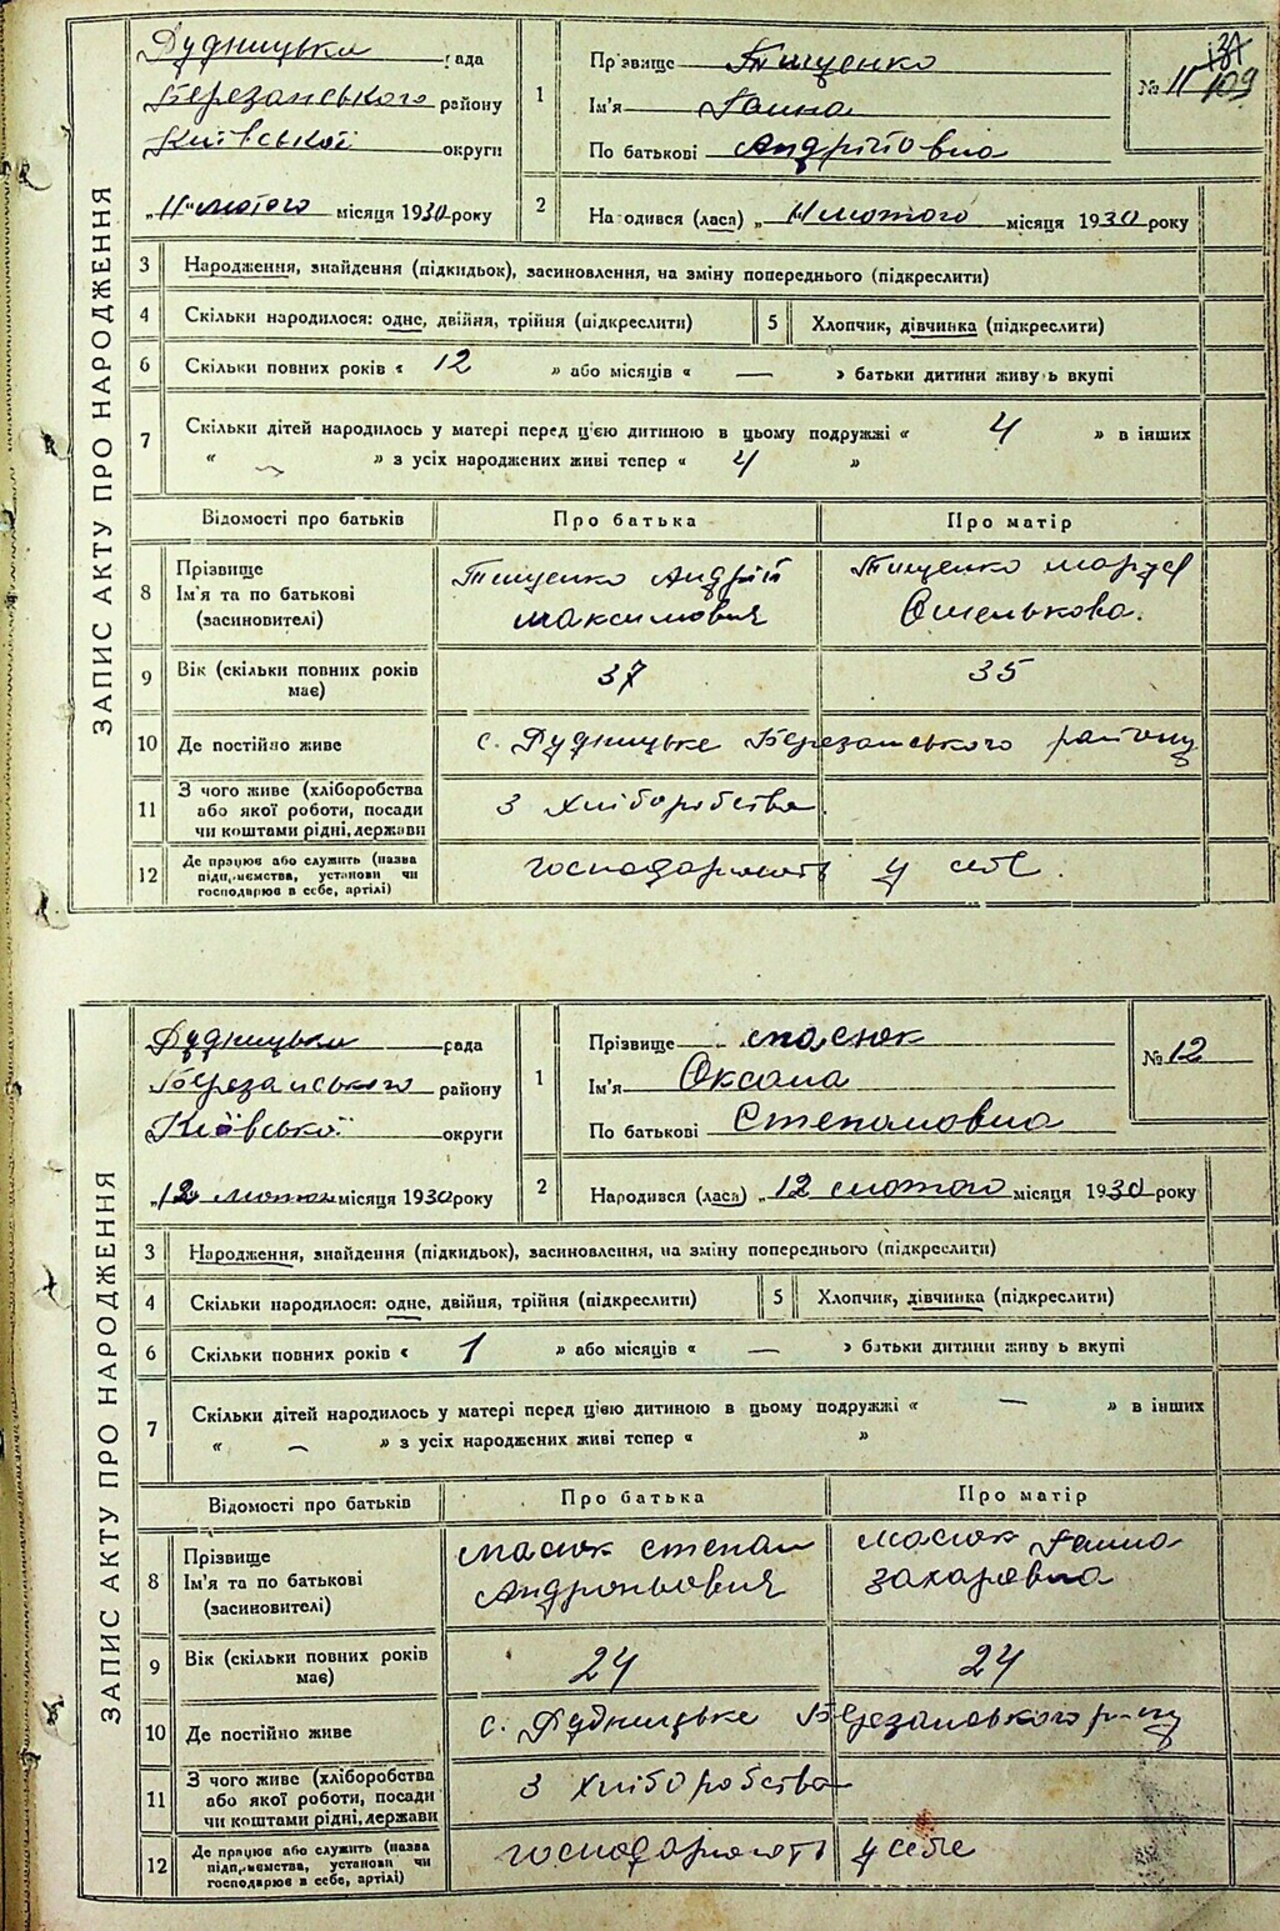 ЗАПИС АКТУ ПРО НАРОДЖЕННЯ
Рудницька рада
Березанського району
Київської округи
„11“ лютого місяця 1930 року
1
Прізвище Тищенко
Ім'я Ганна
По батькові Андрійовна
№ 11
109
2
Народився (лася) „11 лютого місяця 1930 року
3 Народження, знайдення (підкидьок), засиновлення, на зміну попереднього (підкреслити)
4 Скільки народилося: одне, двійня, трійня (підкреслити)
5 Хлопчик, дівчинка (підкреслити)
6 Скільки повних років « 12 » або місяців « — » батьки дитини живуть вкупі
7 Скільки дітей народилось у матері перед цією дитиною в цьому подружжі « 4 » в інших
« — » з усіх народжених живі тепер « 4 »
Відомості про батьків
Про батька
Про матір
8 Прізвище
Ім'я та по батькові
(засиновителі)
Тищенко Андрій
Максимович
Тищенко Маруся
Омелькова.
9 Вік (скільки повних років
має)
37
35
10 Де постійно живе
с. Рудницьке Березанського району
11 З чого живе (хліборобства
або якої роботи, посади
чи коштами рідні, держави
З хліборобства.
12 Де працює або служить (назва
підприємства, установи чи
господарює в себе, артілі)
господарюють у себе.
ЗАПИС АКТУ ПРО НАРОДЖЕННЯ
Рудницька рада
Березанського району
Київської округи
„12 лютого місяця 1930 року
1
Прізвище Масюк
Ім'я Оксана
По батькові Степановна
№ 12
2
Народився (лася) „12 лютого місяця 1930 року
3 Народження, знайдення (підкидьок), засиновлення, на зміну попереднього (підкреслити)
4 Скільки народилося: одне, двійня, трійня (підкреслити)
5 Хлопчик, дівчинка (підкреслити)
6 Скільки повних років « 1 » або місяців « — » батьки дитини живуть вкупі
7 Скільки дітей народилось у матері перед цією дитиною в цьому подружжі « — » в інших
« — » з усіх народжених живі тепер « »
Відомості про батьків
Про батька
Про матір
8 Прізвище
Ім'я та по батькові
(засиновителі)
Масюк Степан
Андроньович
Масюк Ганна
Захаровна
9 Вік (скільки повних років
має)
24
24
10 Де постійно живе
с. Рудницьке Березанського р-ну
11 З чого живе (хліборобства
або якої роботи, посади
чи коштами рідні, держави
З хліборобства
12 Де працює або служить (назва
підприємства, установи чи
господарює в себе, артілі)
господарюють у себе